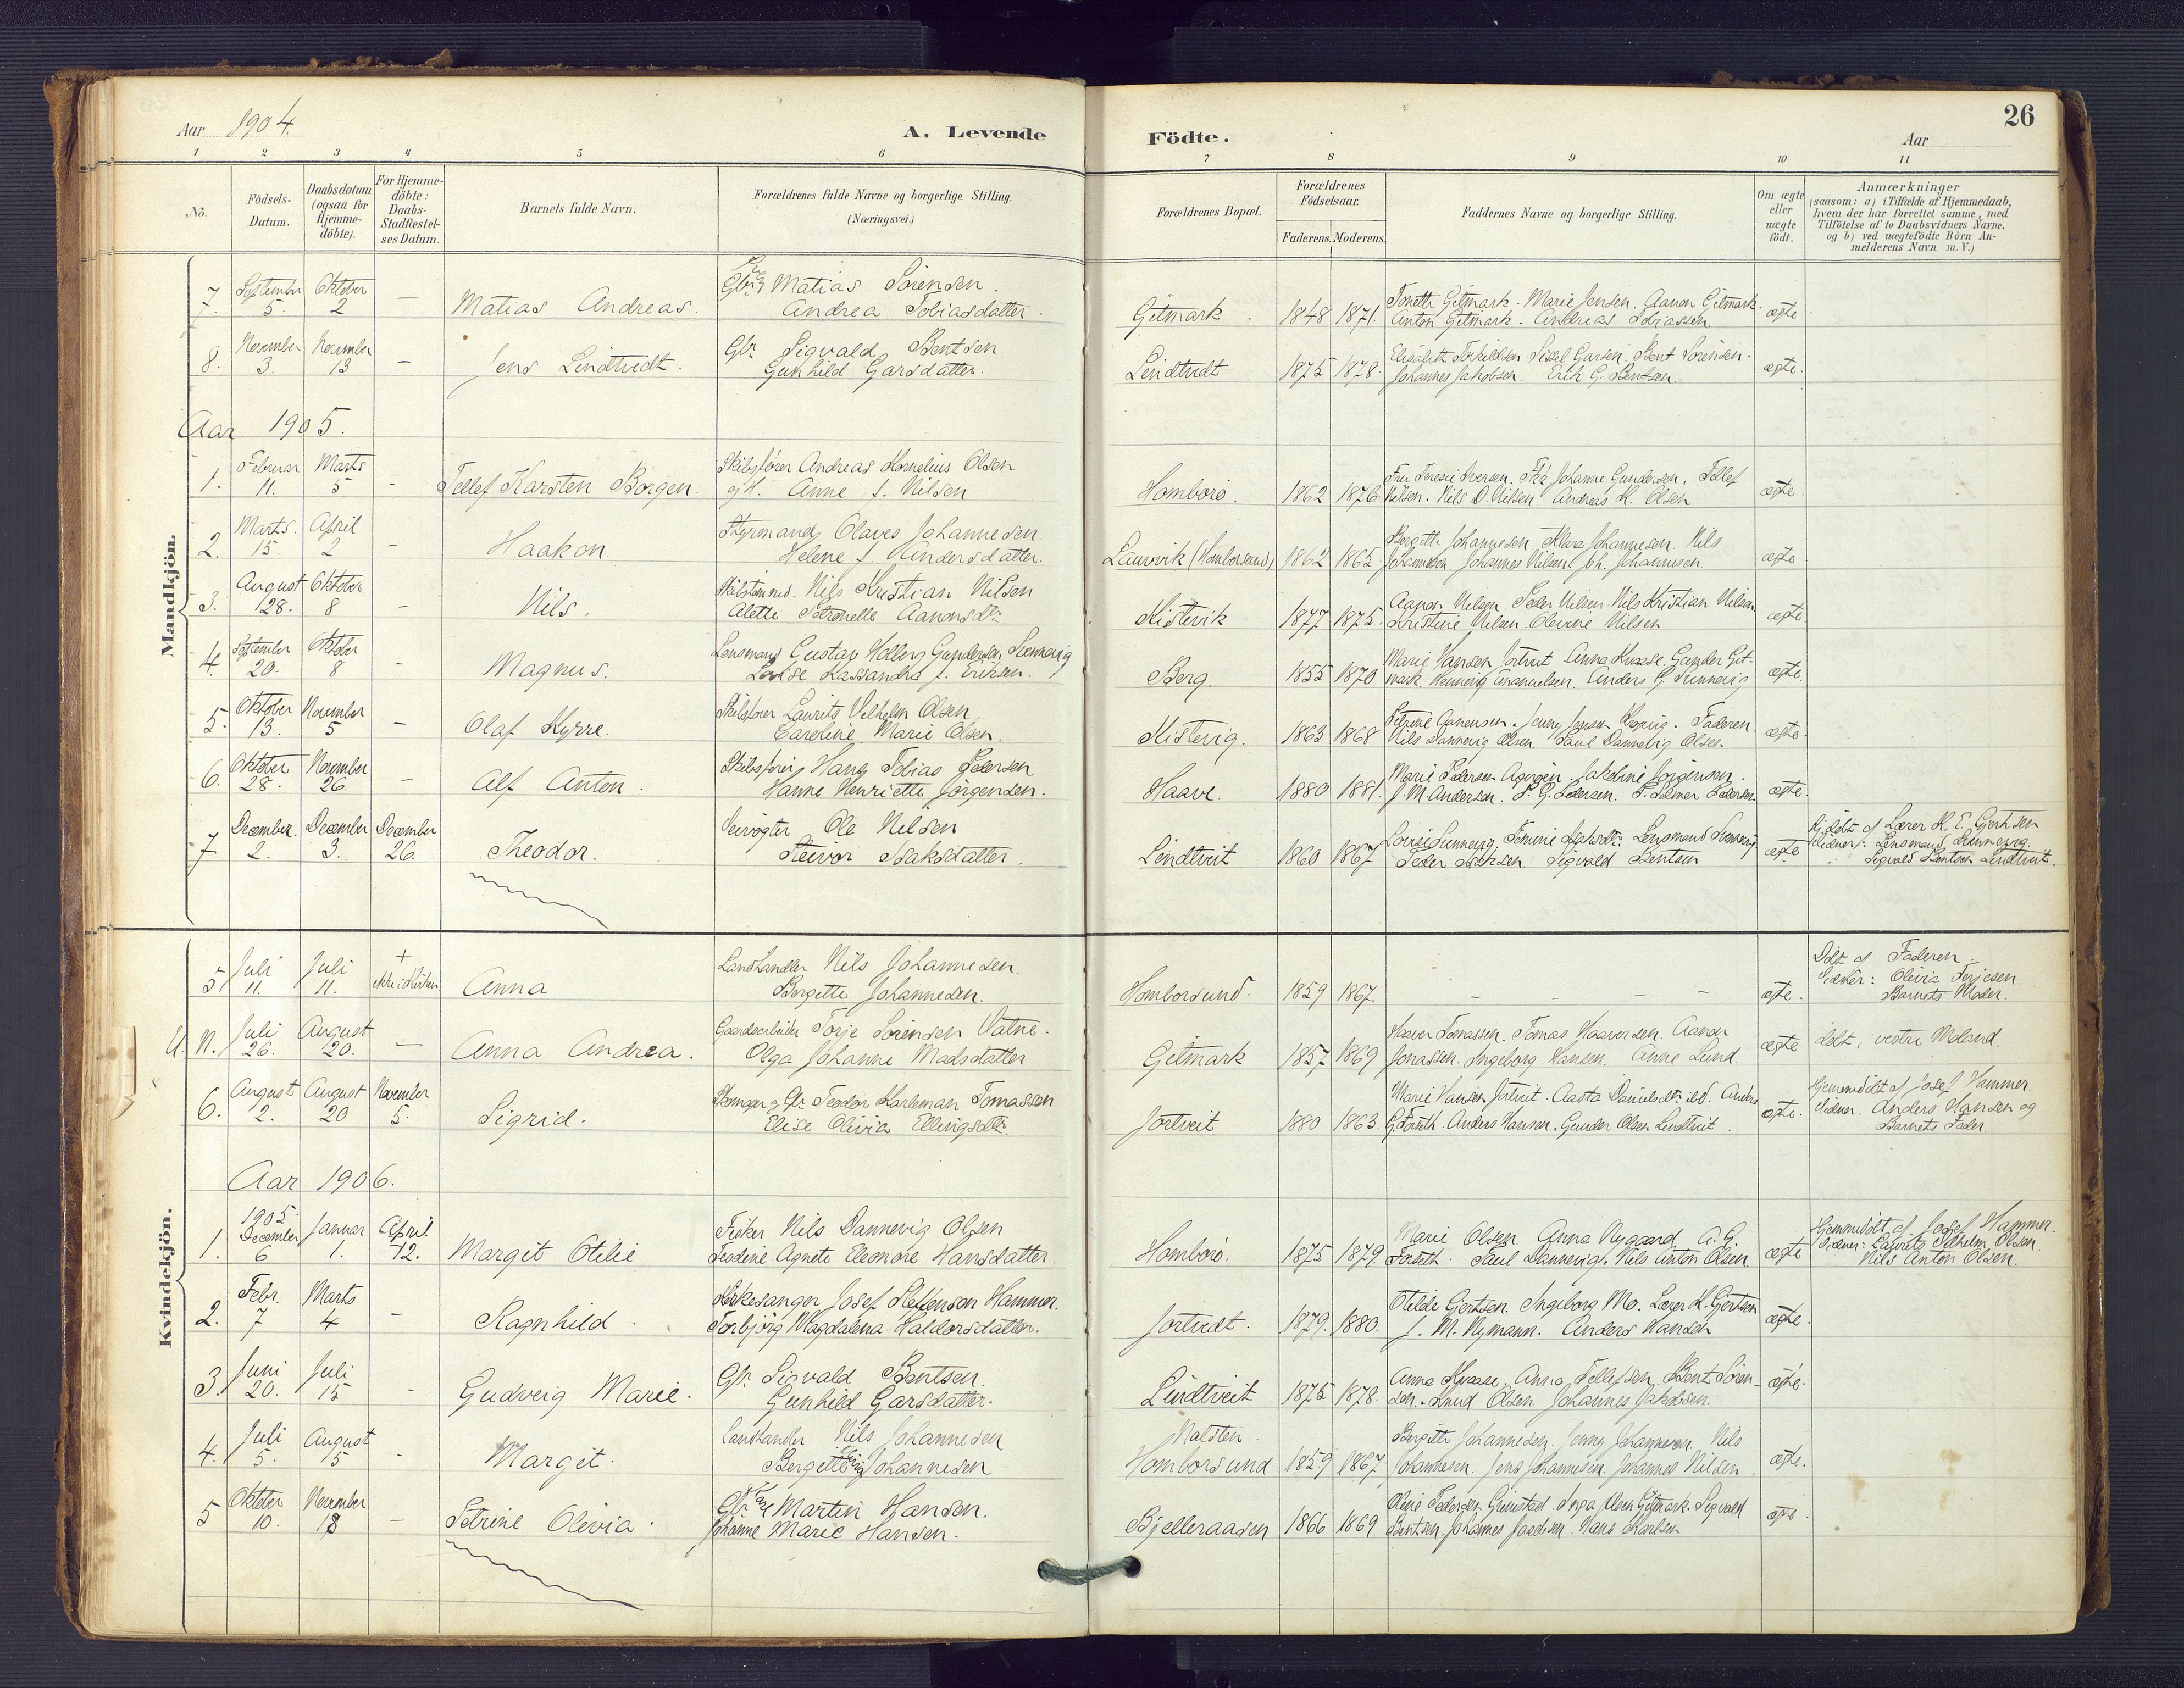 26
Aar 1904.
A. Levende
Födte.
Aar
1 2 3 4 5 6 7 8 9 10 11
No.
Födsels-Datum.
Daabsdatum (ogsaa for Hjemme-döbte).
For Hjemme-döbte: Daabs-Stadfæstel-ses Datum.
Barnets fulde Navn.
Forældrenes fulde Navne og borgerlige Stilling.
(Næringsvei.)
Forældrenes Bopæl.
Forældrenes Födselsaar.
Faderens. Moderens.
Faddernes Navne og borgerlige Stilling.
Om ægte eller uægte födt.
Anmærkninger
(saasom: a) i Tilfælde af Hjemmedaab,
hvem der har forrettet samme, med
Tilföielse af to Daabsvidners Navne,
og b) ved uægtefödte Börn An-
melderens Navn m. V.)
Mandkjön.
7. September 5. Oktober 2 — Matias Andreas. Gbr. Matias Sörensen.
Andrea Tobiasdatter. Gitmark. 1848 1871. Tonette Gitmark. Marie Jensen. Aanon Gitmark.
Anton Gitmark. Andreas Tobiassen. ægte
8. November 3. November 13 — Jens Lindtvedt. Gbr. Sigvald Bentsen
Gunhild Garsdatter. Lindtvedt 1875 1878. Elisabeth Torkildsen. Sissel Garsen. Bent Sörensen.
Johannes Jakobsen. Erik G. Bentsen. ægte.
Aar 1905.
1. Februar 11. Marts 5 - Tellef Karsten Borgen. Skibsförer Andreas Kornelius Olsen
og H. Anne f. Nilsen Homborö. 1862 1876 Fru Terese Iversen. Frk. Johanne Gundersen. Tellef
Nilsen. Nils D. Nilsen Andreas K. Olsen ægte
2. Marts. 15. April 2 - Haakon Styrmand Olaves Johannesen
Helene f. Andersdatter. Laurvik (Homborsund) 1862 1865 Bergitte Johannesen Klara Johannesen. Nils
Johannesen Johannes Nilsen Joh. Johannesen. ægte
3. August 28. Oktober 8 - Nils. Nils Kristian Nilsen
Alette Petronelle Aanonsdtr. Kistevik 1877 1875. Aanon Nilsen. Peder Nilsen. Nils Kristian Nilsen
Kristine Nilsen. Olevine Nilsen ægte.
4. September 20. Oktober 8 - Magnus. Lensmand Gustav Hedberg Gundersen Sunnevig
Lovise Kassandra f. Eriksen. Berg. 1855 1870 Marie Hansen Jortveit Anna Kvase. Gunder Git-
mark. Hennevig Emanuelsen. Anders G. Sunnevig ægte.
5. Oktober 13. November 5 — Olaf Kyrre. Skibsförer Laurits Vilhelm Olsen
Caroline Marie Olsen. Kistevig. 1863 1868 Petrine Aanensen. Jenny Jensen. Faderen.
Nils Dannevig Olsen. Paul Dannevig Olsen. ægte
6. Oktober 28. November 26 — Alf Anton. Skibsförer Hans Tobias Pedersen
Hanne Henriette Jörgensen. Haave. 1880 1881. Marie Pedersen Agerøen. Jakobine Jörgensen.
J. M. Andersen. P. G. Pedersen. P. Pedersen. ægte.
7 December. 2. December 3. December 26. Theodor. Veivogter Ole Nilsen
Reivor Isaksdatter. Lindtveit 1860 1867 Lovise Sunnevig. Tomine Isaksdtr. Lensmand Sunnevig
Peder Isaksen. Sigvald Bentsen ægte Hj.döbt af Lærer K. E. Gjertsen
Vidner: Lensmand Sunnevig.
Sigvald Bentsen Lindtveit.
Kvindekjön.
5 Juli 11. Juli 11. + ikke i Kirken Anna Landhandler Nils Johannesen.
Bergitte Johannesen. Homborsund. 1859 1867. - - - - ægte. Döbt af Faderen.
Vidner: Olivia Terjesen.
Barnets Moder.
U. N. Juli 26. August 20. — Anna Andrea. Gaardarbeider Torje Sörensen Vatne.
Olga Johanne Madsdatter Gitmark 1857 1869 Haaver Tomassen. Tomas Haaversen. Aanon
Jonassen. Ingeborg Hansen. Anne Lund. ægte döbt i vestre Moland.
6. August 2. August 20 November 5. Sigrid. Skomager og Gbr. Teodor Karleman Tomassen
Elise Olivia Ellingsdtr. Jortveit 1880 1863. Marie Hansen Jortveit. Aasta Danielsdtr. ibd. Anders
G. Forseth. Anders Hansen. Gunder Olsen Lindtveit. ægte. Hjemmedöbt af Josef Hammer.
Vidner. Anders Hansen og
Barnets Fader.
Aar 1906.
1. 1905 December 6 Januar 1. April 12. Margit Otilie Fisker Nils Dannevig Olsen
Teodine Agnete Eleonore Hansdatter. Homborö. 1875 1879. Marie Olsen Anna Nygaard A. G.
Forseth. Paul Dannevig. Nils Anton Olsen ægte Hjemmedöbt af Josef Hammer.
Vidner: Laurits Vilhelm Olsen.
Nils Anton Olsen.
2. Febr. 7 Marts 4 - Ragnhild. Kirkesanger Josef Steffensen Hammer.
Torbjörg Magdalena Haldorsdatter. Jortvedt. 1879. 1880. Otilde Gjertsen. Ingeborg Mo. Lærer K. Gjertsen
J. M. Nymann. Anders Hansen ægte.
3. Juni 20. Juli 15 - Gudveig Marie. Gbr. Sigvald Bentsen.
Gunhild Garsdatter. Lindtveit 1875 1878. Anna Kvase. Anna Tellefsen. Bent Sören-
sen. Knud Olsen. Johannes Jakobsen. ægte.
4. Juli 5. August 15 - Margit. Landhandler Nils Johannesen
Bergitte Johannesen Malsten
Homborsund 1859 1867 Bergitte Johannesen. Jenny Johannesen. Nils
Johannesen. Jens Johannesen. Johannes Nilsen. ægte.
5 Oktober 10. November 18 — Petrine Olivia. Gbr. Martin Hansen.
Johanne Marie Hansen. Bjelleraasen 1866 1869. Olevie Pedersen Grimstad. Inga Olsen Gitmark. Sigvald
Bentsen. Johannes Jacobsen. Hans Karlsen ægte